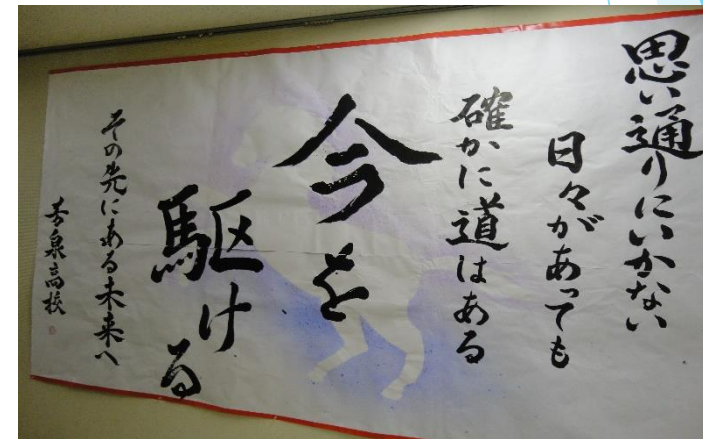 思い通りにいかない
日々があっても
確かに道はある
今を
駆ける
その先にある未来へ
芳泉高校